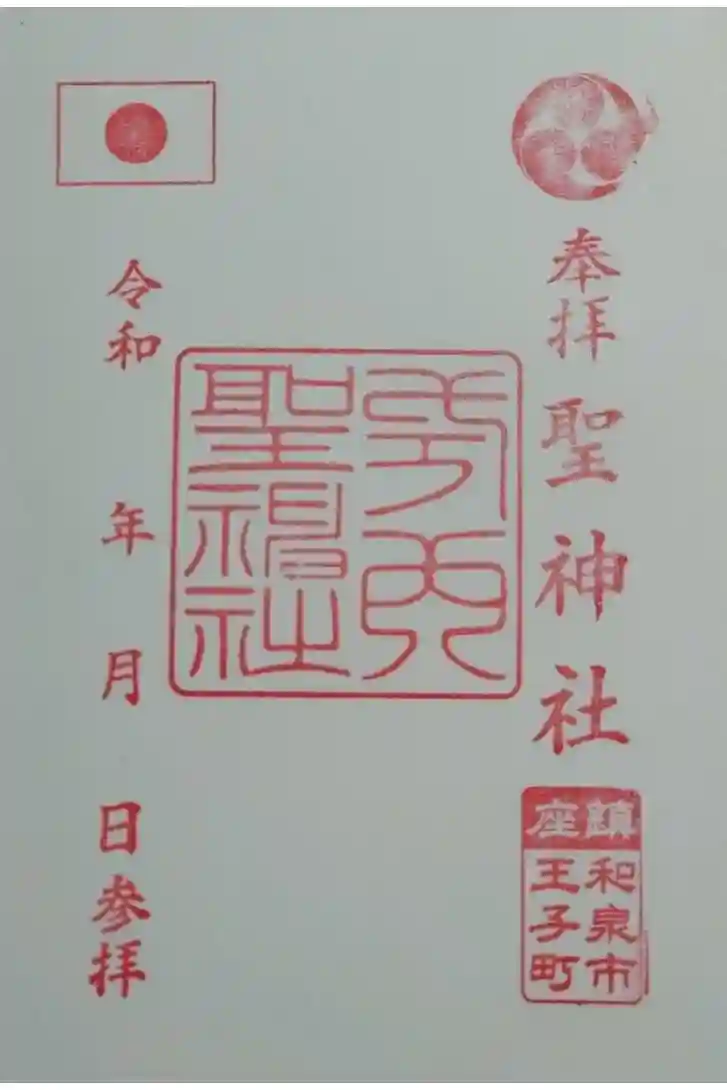 奉拝 聖神社
鎮座
和泉市
王子町
聖神社
令和 年 月 日参拝